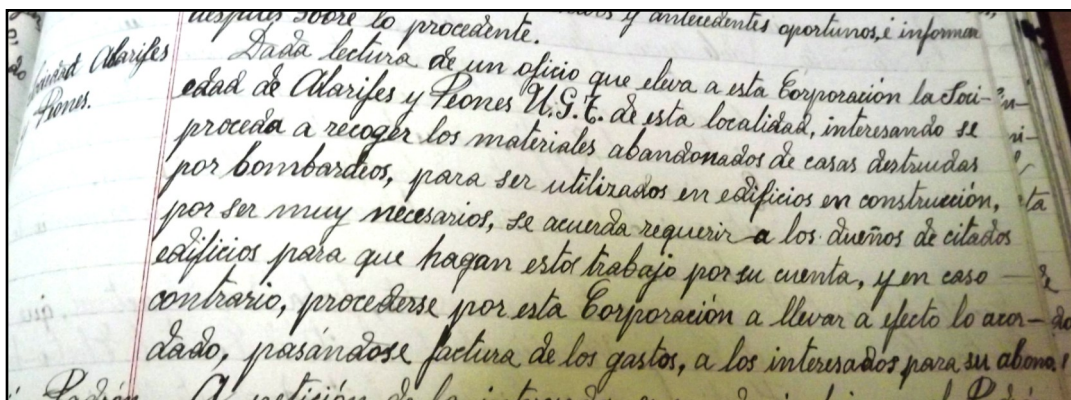 después sobre lo procedente.
y antecedentes oportunos, é informar
Alarifes
Peones.
Dada lectura de un oficio que eleva a esta Corporación la Soci-
edad de Alarifes y Peones U.G.T. de esta localidad, interesando se
proceda a recoger los materiales abandonados de casas destruidas
por bombardeos, para ser utilizados en edificios en construcción,
por ser muy necesarios, se acuerda requerir a los dueños de citados
edificios para que hagan estos trabajo por su cuenta, y en caso
contrario, procederse por esta Corporación a llevar a efecto lo acor-
dado, pasándose factura de los gastos, a los interesados para su abono.
Padrón A petición de la